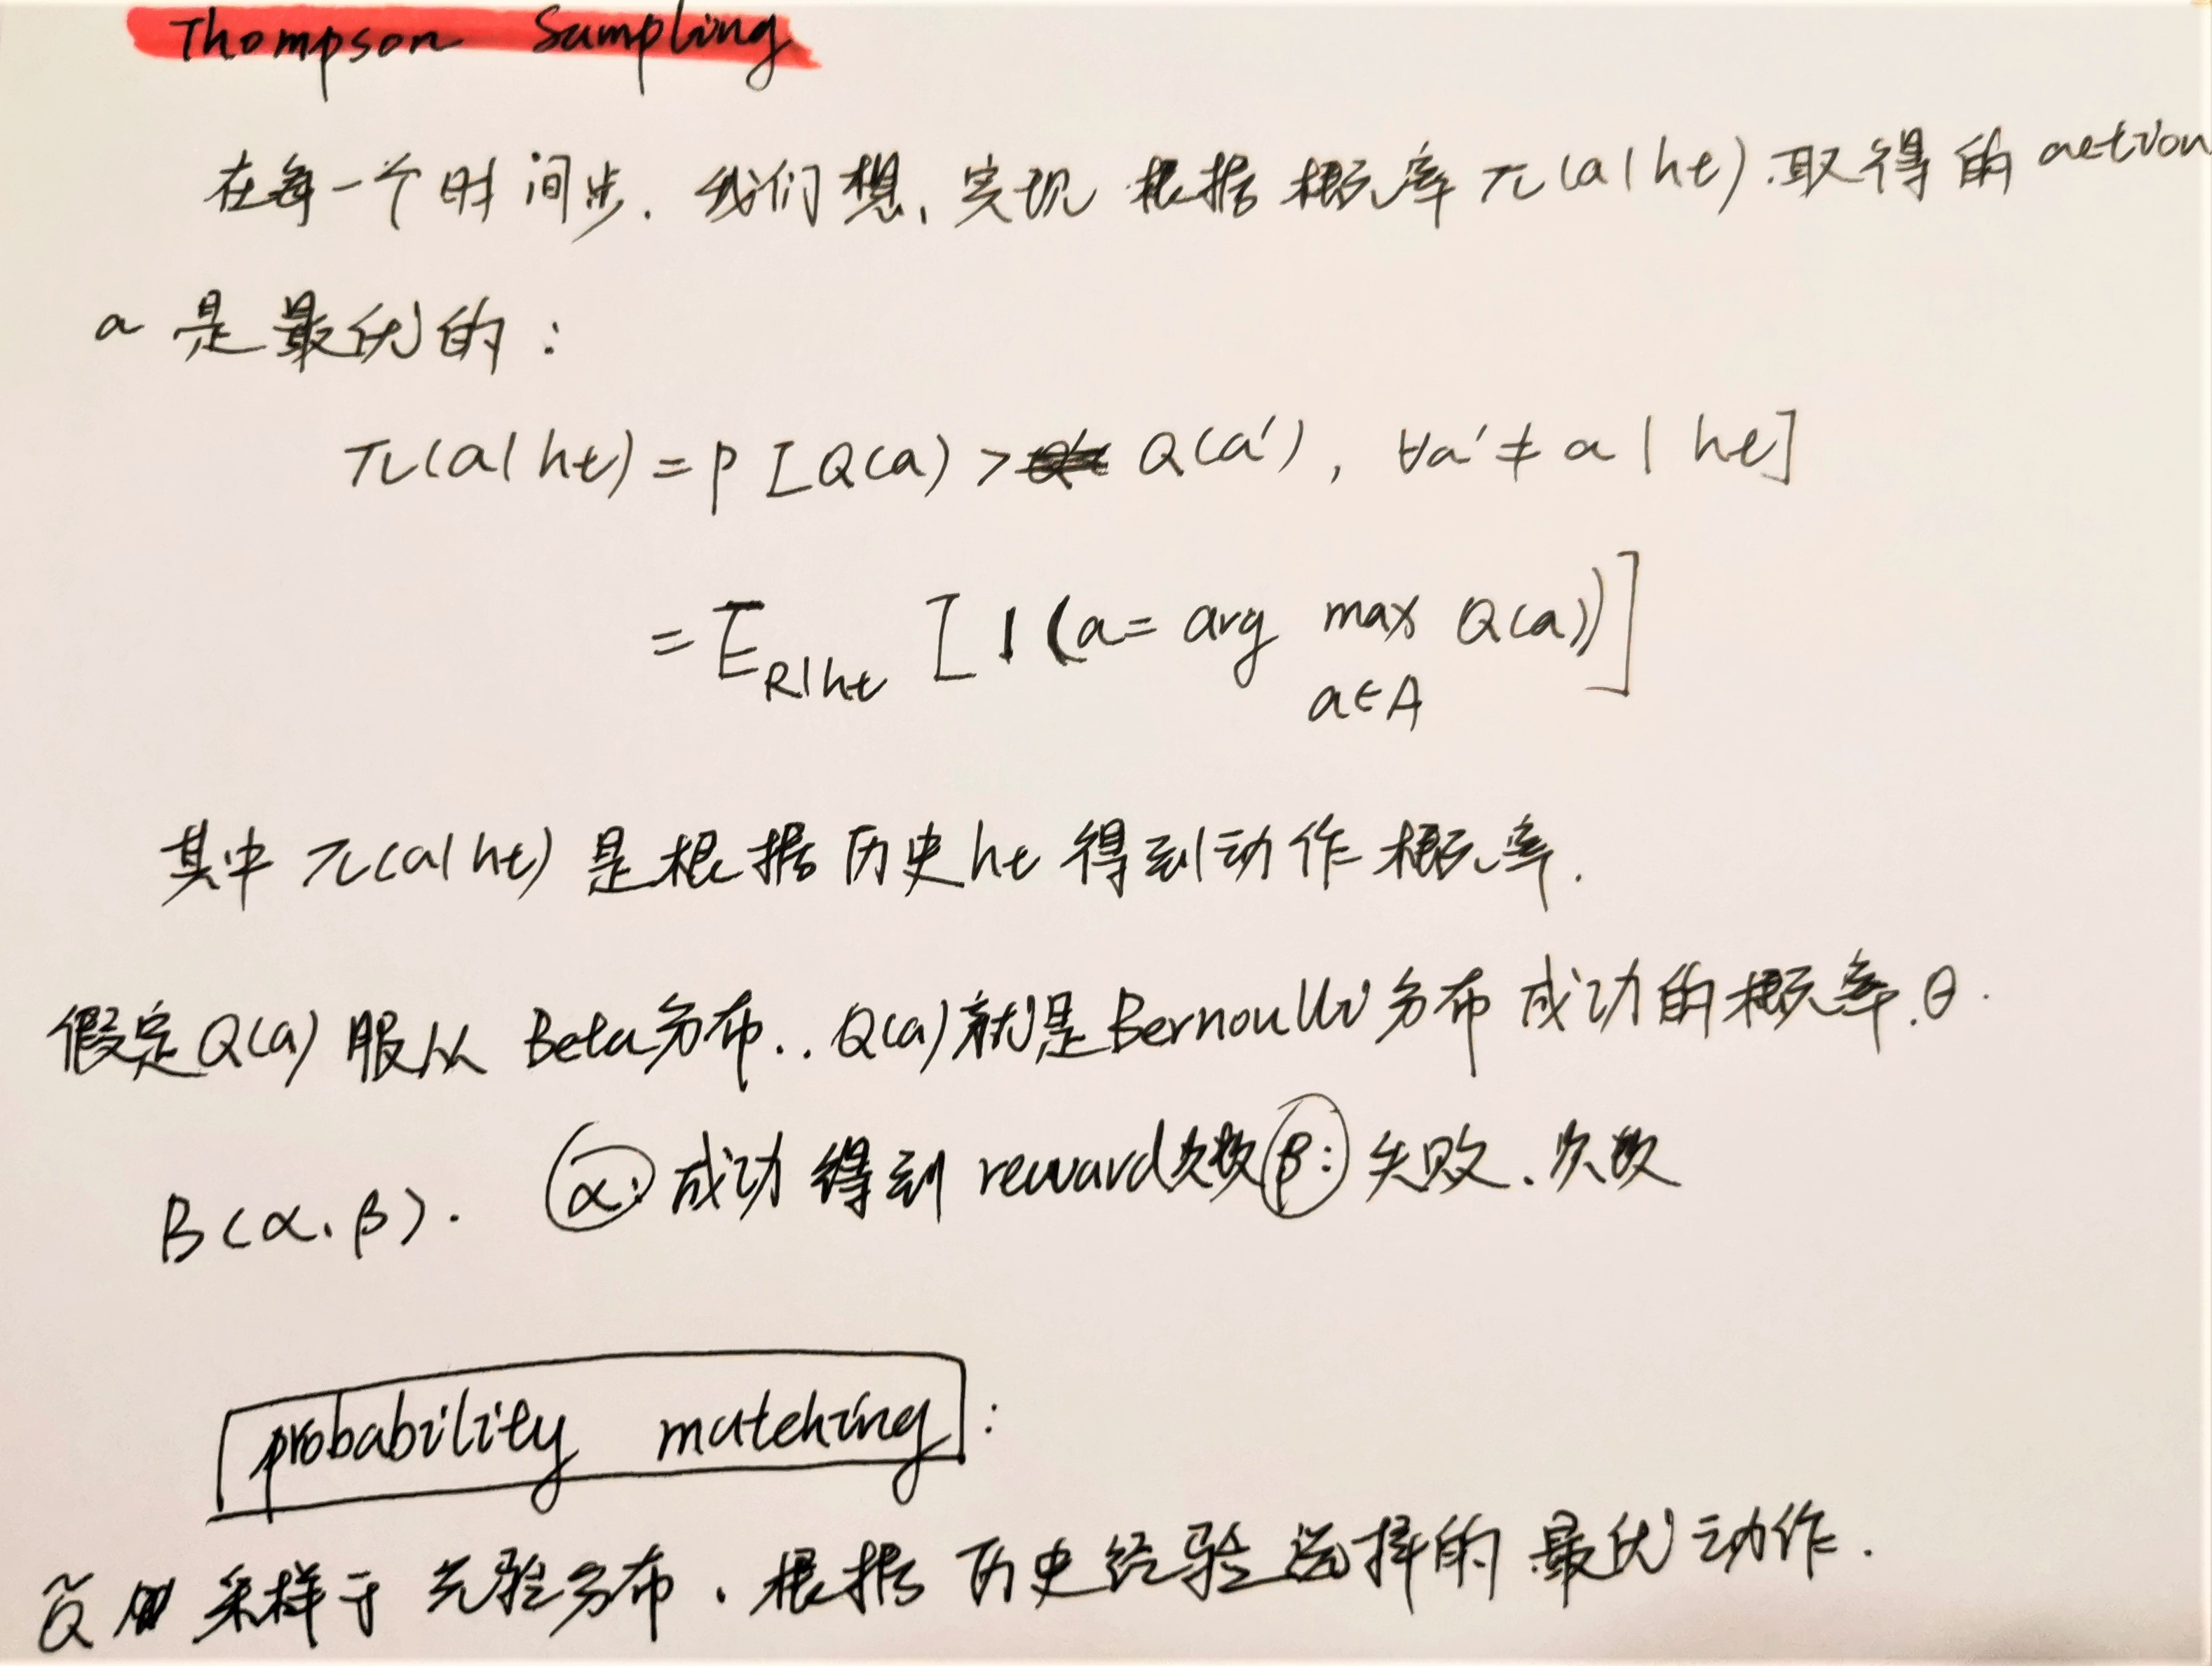 Thompson Sampling
在每一个时间步. 我们想、实现 根据概率 π(a|ht) 取得的 action
a 是最优的:
π(a|ht) = P [Q(a) > Q(a'), ∀a' ≠ a | ht]
= E_R|ht [1 (a = arg max Q(a))]
a∈A
其中 π(a|ht) 是根据历史 ht 得到动作概率.
假定 Q(a) 服从 Beta分布.. Q(a) 就是 Bernoulli 分布成功的概率. θ.
B(α、β). α: 成功得到 reward次数 β: 失败、次数
probability matching :
Q̃ 采样于先验分布. 根据历史经验选择的最优动作.